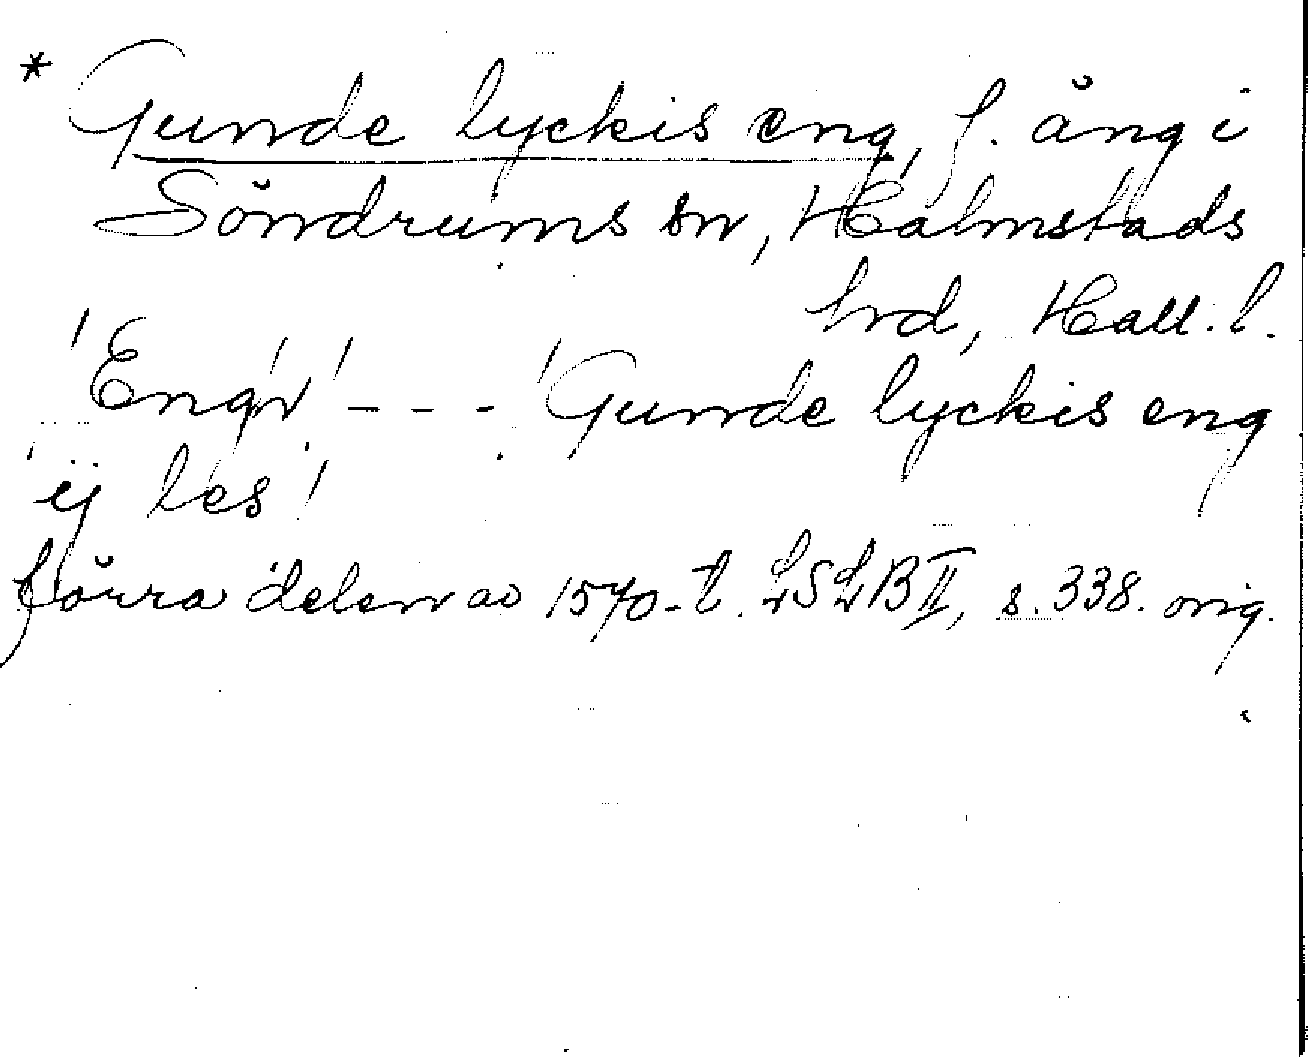 * Gunde lyckis eng, f. äng i
Söndrums sn, Halmstads
hrd, Hall. l.
'Engv' - - - 'Gunde lyckis eng
ij les'
förra delen av 1570-t. LSLB II, s. 338. orig.